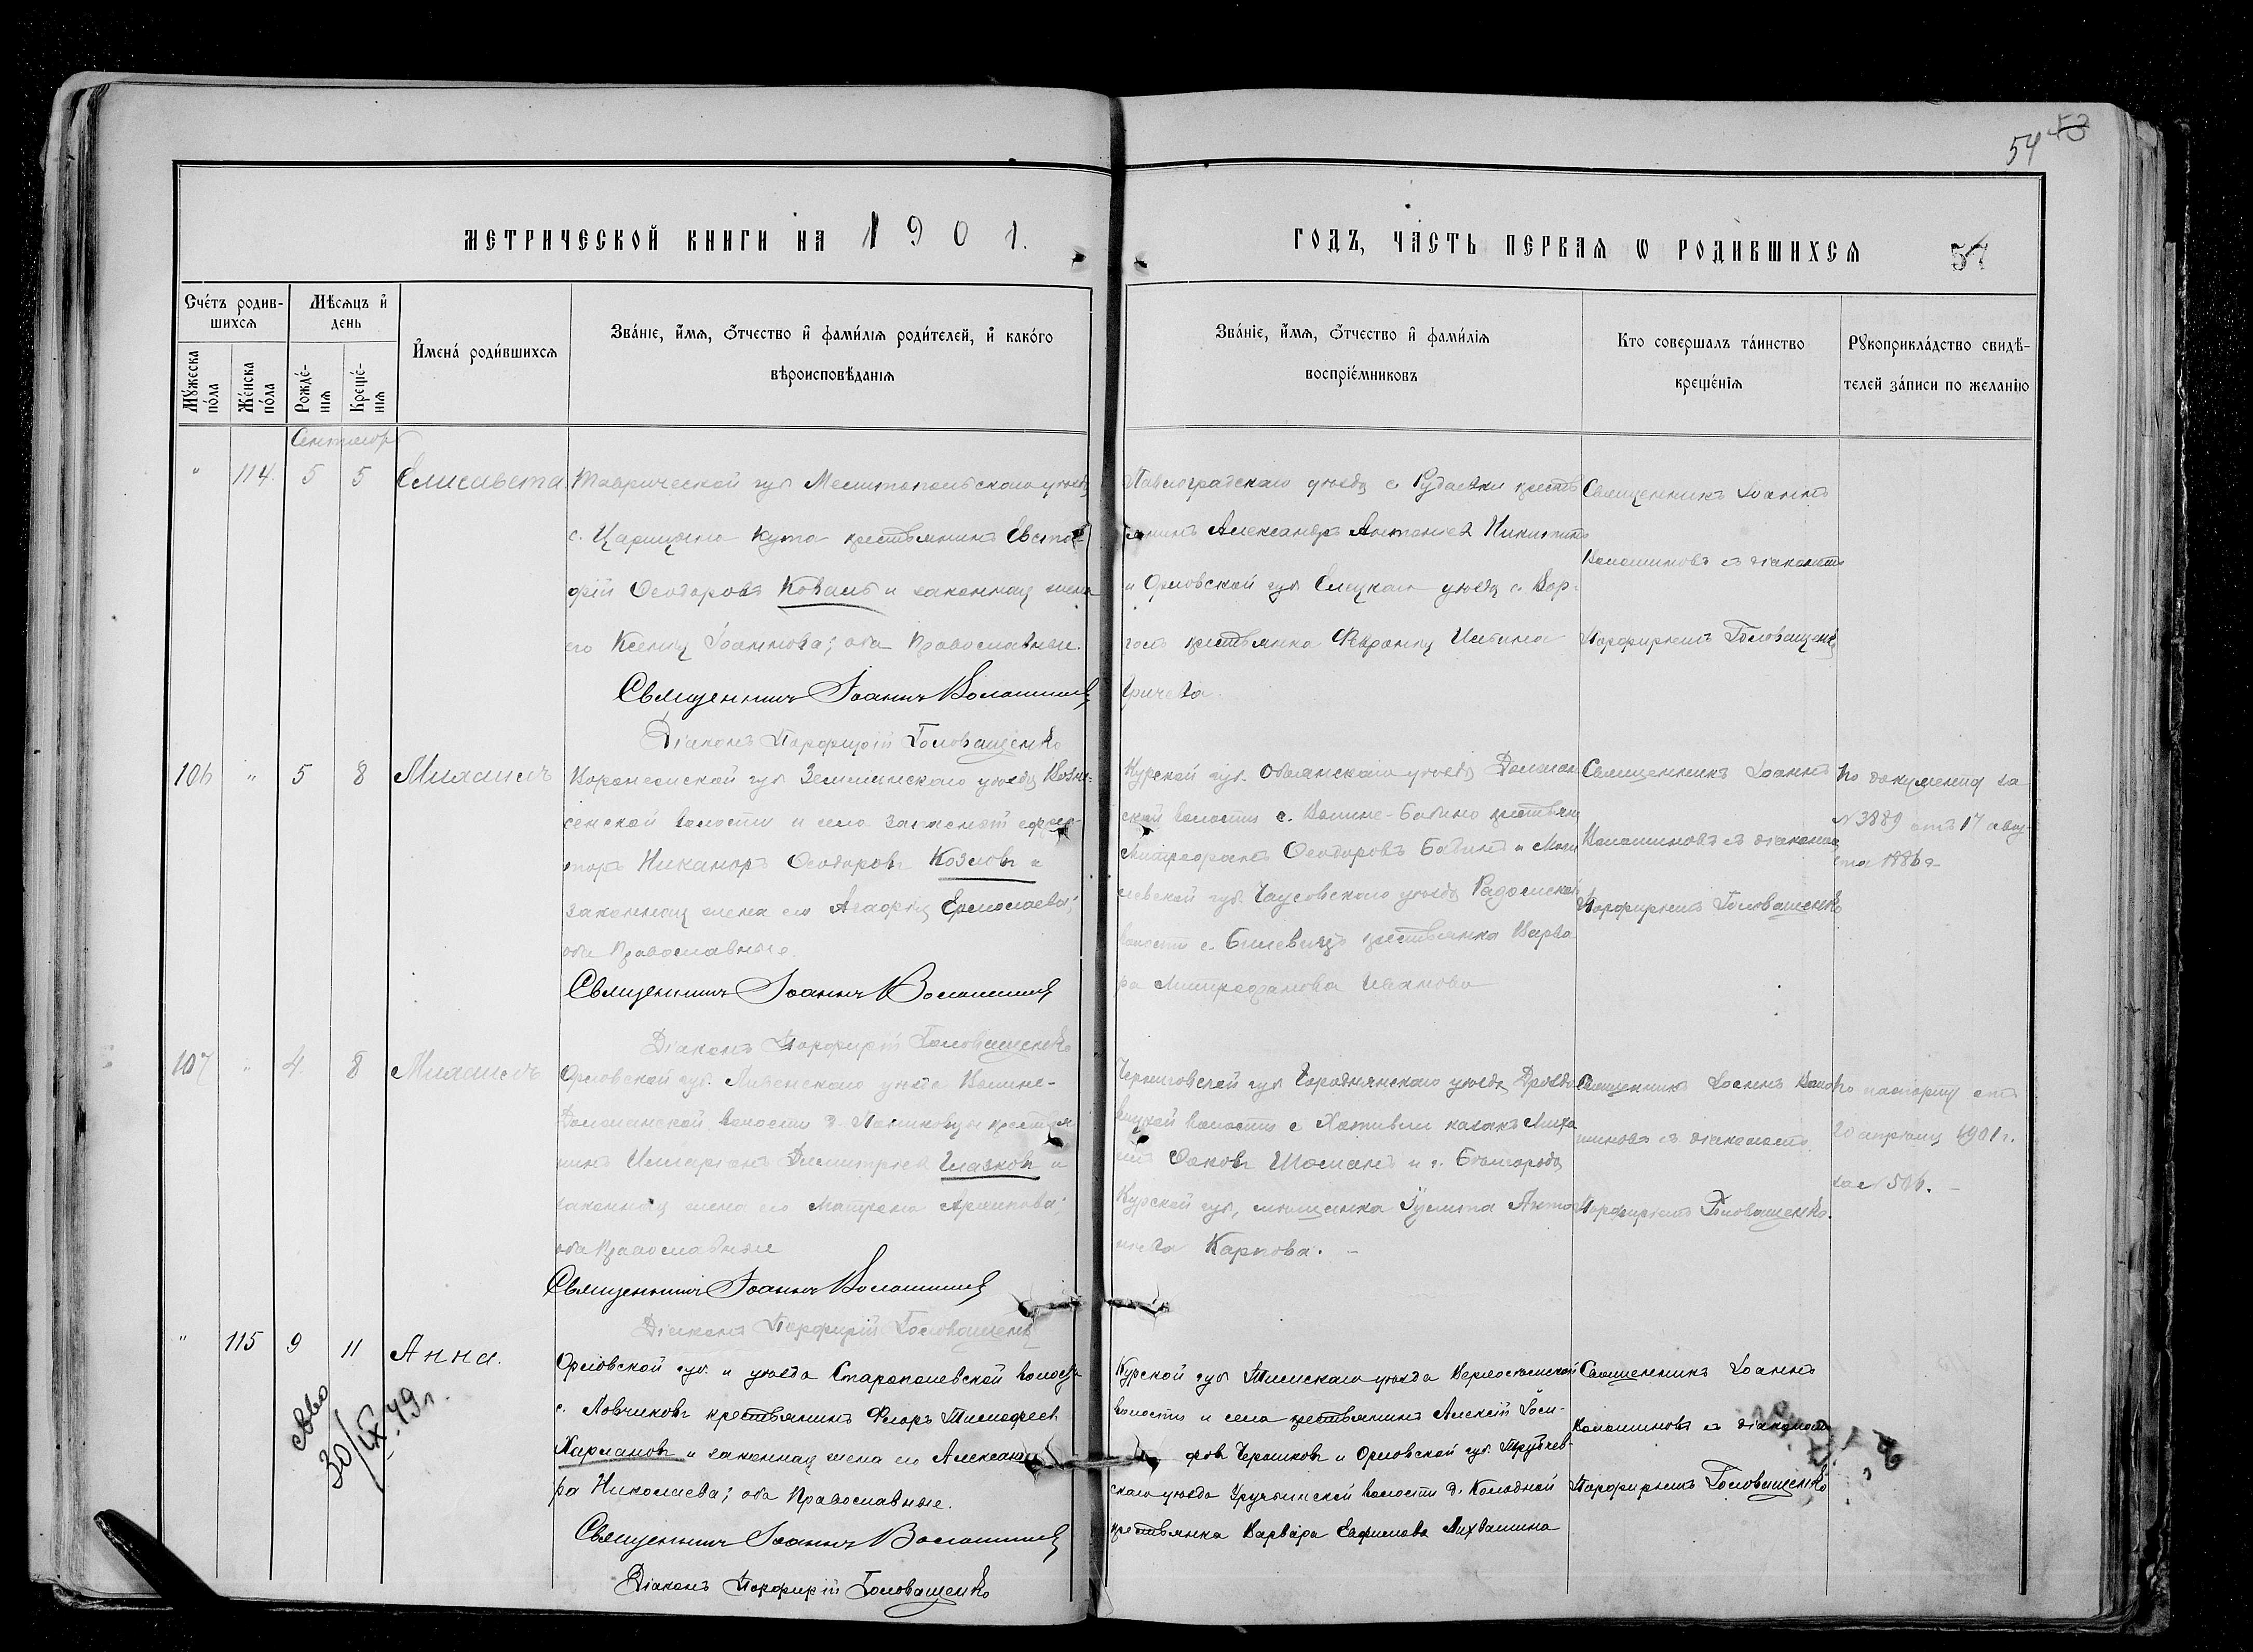 54 53
МЕТРИЧЕСКОЙ КНИГИ НА 1901.
ГОДЪ, ЧАСТЬ ПЕРВАЯ Ѡ РОДИВШИХСЯ
57
Сче́тъ родив-
шихсѧ
Мѣсѧцъ и҆
день
И҆мена̀ роди́вшихсѧ
Зва́нїе, и҆́мѧ, ѻ҆́тчество и҆ фами́лїѧ роди́телей, и҆ како́го
вѣроисповѣ́данїѧ
Мꙋ́жеска
по́ла
Же́нска
по́ла
Рожде́-
нїѧ
Креще́-
нїѧ
Зва́нїе, и҆́мѧ, ѻ҆́тчество и҆ фами́лїѧ
воспрїе́мниковъ
Кто соверша́лъ та́инство
креще́нїѧ
Рꙋкоприкла́дство свидѣ́-
телей за́писи по жела́нїю
Сентябрь
" 114. 5 5 Елисавета
Таврической губ Мелитопольскаго уѣзда
с. Царицына Кута крестьянинъ Евста-
фій Ѳеодоровъ Коваль и законная жена
его Ксенія Іоаннова; оба Православные.
Священникъ Іоаннъ Волошиновъ
Діаконъ Порфирій Головащенко
Павлоградскаго уѣзда с. крестья
нинъ Александръ Никитинъ
и Орловской губ Елецкаго уѣзда с. Вор-
голъ крестьянка
Священникъ Іоаннъ
Волошиновъ съ діакономъ
Порфиріемъ Головащенко
106 " 5 8 Михаилъ
Воронежской губ Землянскаго уѣзда
сенской волости и села ефрей-
торъ Никаноръ Ѳеодоровъ Козловъ и
законная жена его Агафія Ермолаева;
оба Православные.
Священникъ Іоаннъ Волошиновъ
Діаконъ Порфирій Головащенко
Курской губ. Обоянскаго уѣзда Должан
ской волости с. крестьян
Митрофанъ Ѳеодоровъ Бабинъ и Моги
левской губ. Чаусовскаго уѣзда Радомской
волости с. крестьянка Варва-
ра Митрофанова Иванова
Священникъ Іоаннъ
Волошиновъ съ діакономъ
Порфиріемъ Головащенко
По документу за
N 3889 отъ 17 авгу-
ста 1886 г.
107 " 4 8 Михаилъ
Орловской губ. Ливенскаго уѣзда
волости д. крестья
нинъ Димитріевъ Глазковъ и
законная жена его Матрена Архипова;
оба Православные
Священникъ Іоаннъ Волошиновъ
Діаконъ Порфирій Головащенко
Черниговской губ Городнянскаго уѣзда
волости с казакъ Миха
илъ и г. Бѣлгорода
Курской губ, мѣщанка Анто-
Карпова.
Священникъ Іоаннъ Воло
шиновъ съ діакономъ
Порфиріемъ Головащенко.
По паспорту отъ
20 апрѣля 1901 г.
за N 506.
" 115 9 11 Анна.
30/IX 49 г.
Орловской губ. и уѣзда волости
с. Ловчиковъ крестьянинъ Флоръ Тимофеевъ
Харлановъ и законная жена его Александ
ра Николаева; оба Православные.
Священникъ Іоаннъ Волошиновъ
Діаконъ Порфирій Головащенко
Курской губ Тимскаго уѣзда
волости и села крестьянинъ Алексѣй Іоси-
фовъ и Орловской губ. Трубчев-
скаго уѣзда волости д. Колодной
крестьянка Варвара Евфимова
Священникъ Іоаннъ
Волошиновъ съ діакономъ
Порфиріемъ Головащенко